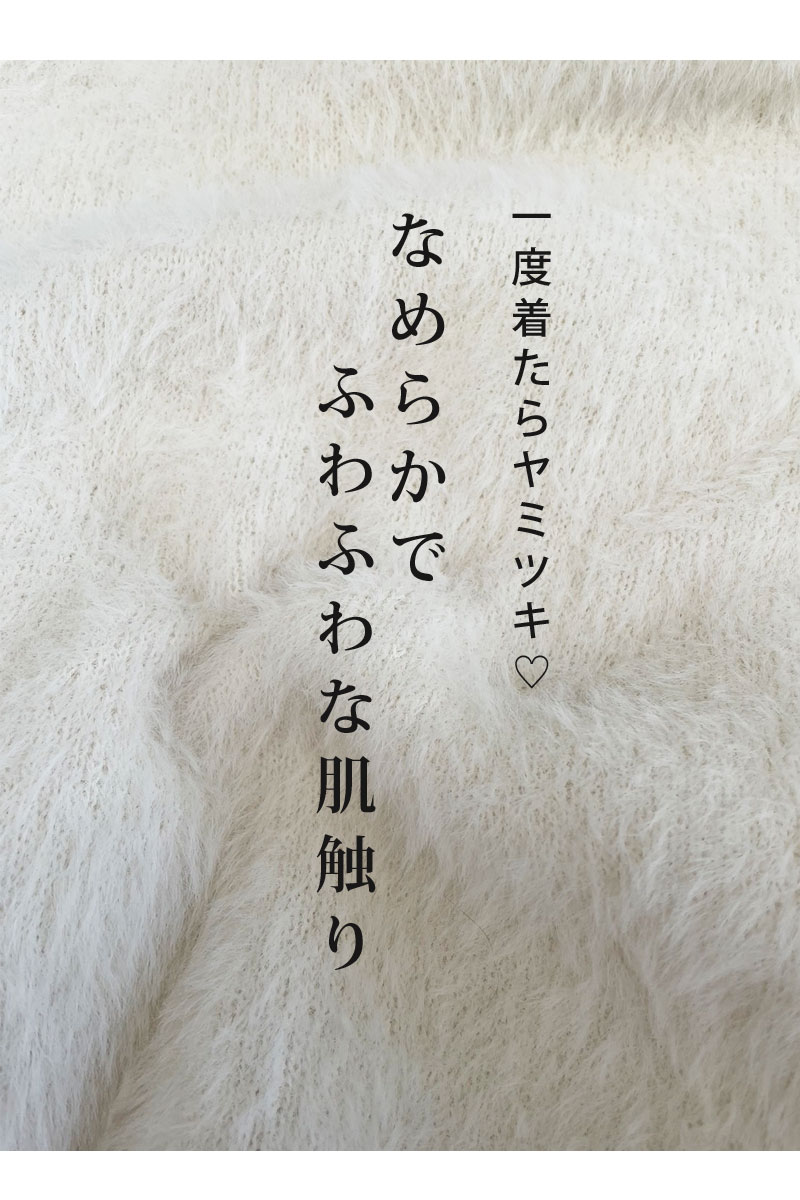 一度着たらヤミツキ♡
なめらかで
ふわふわな肌触り